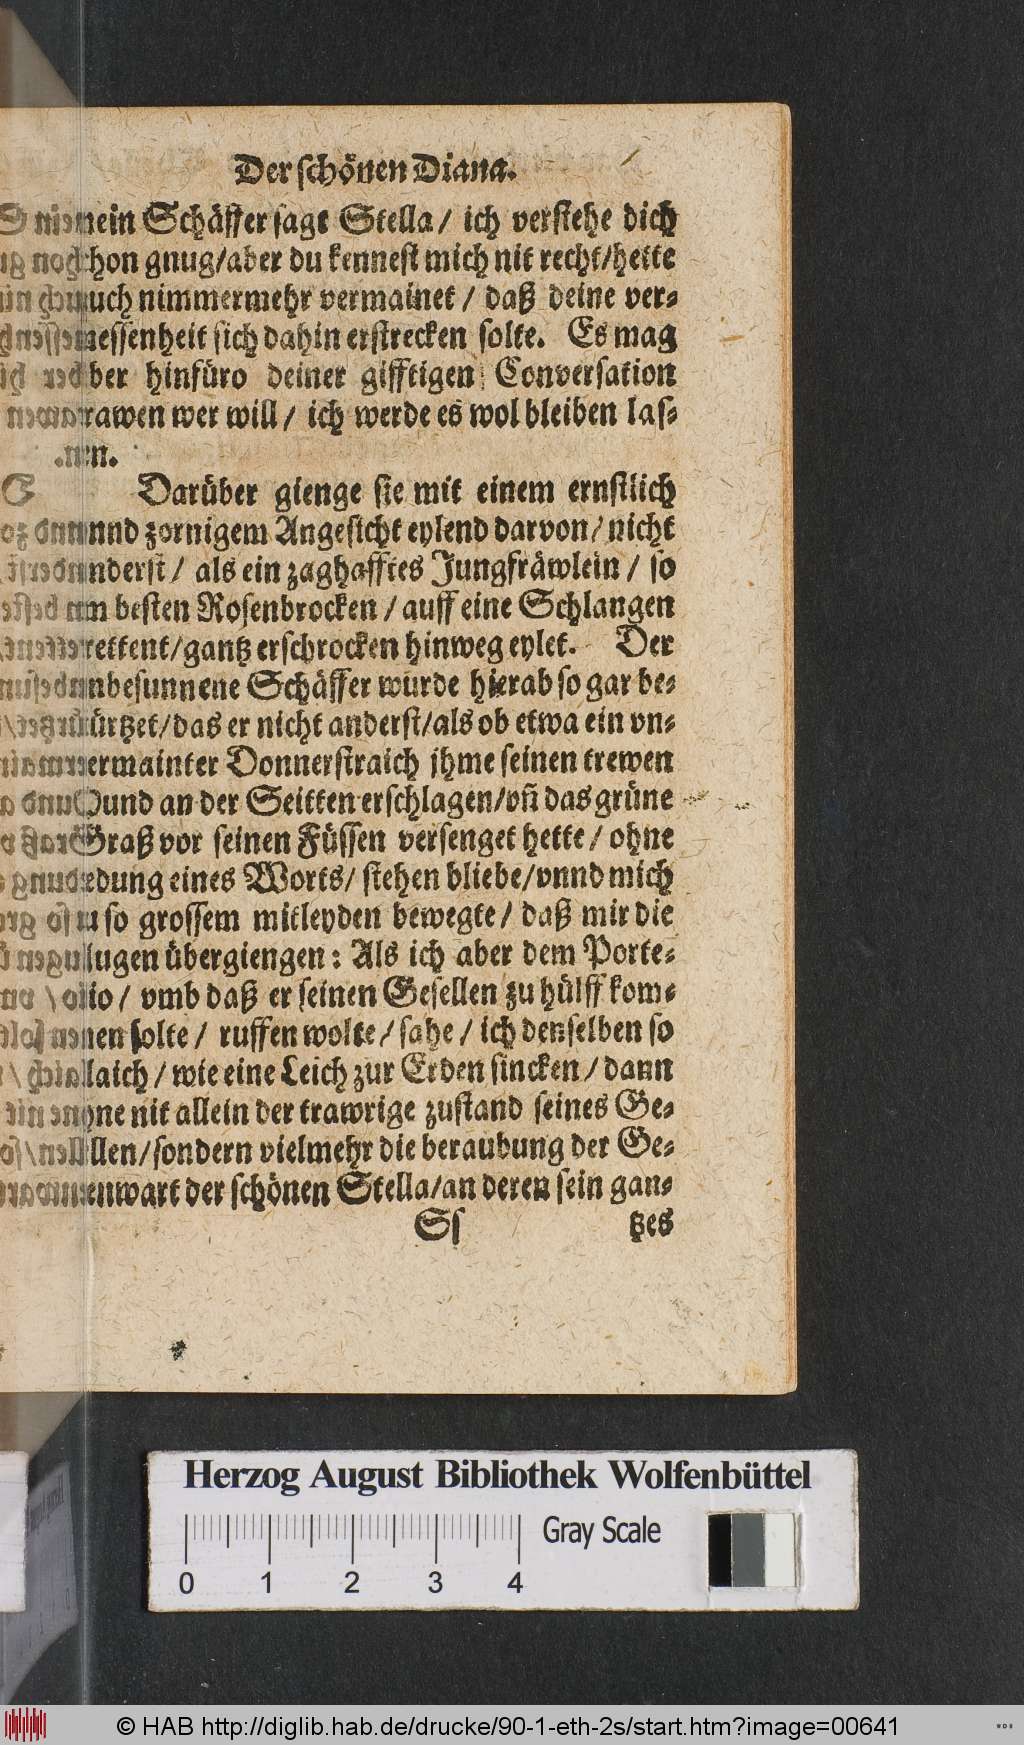 Der schönen Diana.
nein Schäffer sagt Stella / ich verstehe dich
hon gnug / aber du kennest mich nit recht / hette
uch nimmermehr vermainet / daß deine ver-
essenheit sich dahin erstrecken solte. Es mag
ber hinfüro deiner gifftigen Conversation
rawen wer will / ich werde es wol bleiben las-
en.
Darüber gienge sie mit einem ernstlich
nnd zornigem Angesicht eylend darvon / nicht
nderst / als ein zaghafftes Jungfräwlein / so
m besten Rosenbrocken / auff eine Schlangen
rettent / gantz erschrocken hinweg eylet. Der
nbesunnene Schäffer wurde hierab so gar be-
ürtzet / das er nicht anderst / als ob etwa ein vn-
ermainter Donnerstraich jhme seinen trewen
und an der Seitten erschlagen / vn̄ das grüne
Graß vor seinen Füssen versenget hette / ohne
edung eines Worts / stehen bliebe / vnnd mich
u so grossem mitleyden bewegte / daß mir die
ugen übergiengen : Als ich aber dem Porte-
io / vmb daß er seinen Gesellen zu hülff kom-
en solte / ruffen wolte / sahe / ich denselben so
laich / wie eine Leich zur Erden sincken / dann
ne nit allein der trawrige zustand seines Ge-
llen / sondern vielmehr die beraubung der Ge-
enwart der schönen Stella / an deren sein gan-
Ss tzes
Herzog August Bibliothek Wolfenbüttel
0 1 2 3 4 Gray Scale
© HAB http://diglib.hab.de/drucke/90-1-eth-2s/start.htm?image=00641